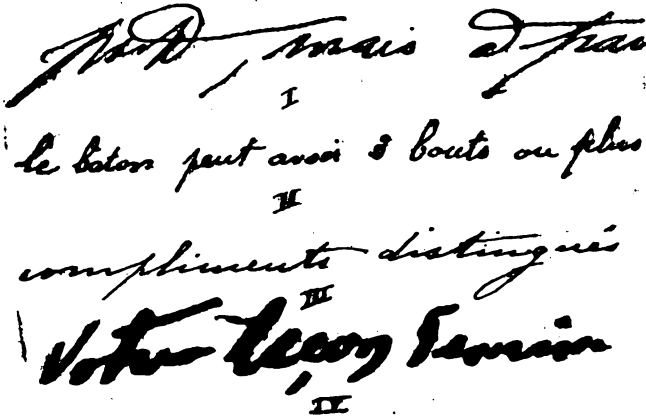 , mais à
I
le baton peut avoir 3 bouts ou plus
II
compliments distingués
III
Votre leçon
IV